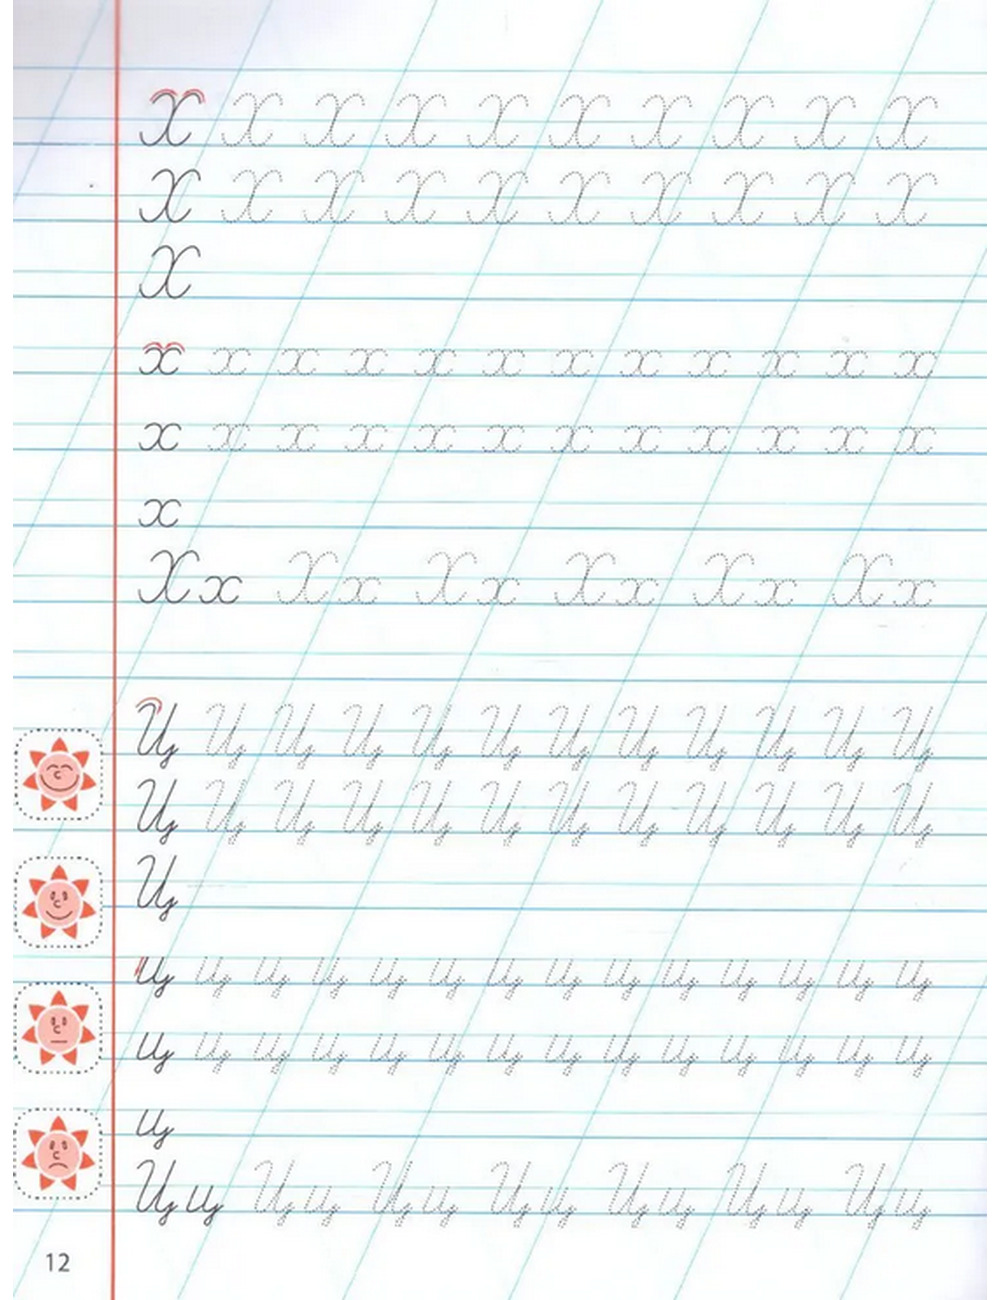 Х Х Х Х Х Х Х Х Х Х
Х Х Х Х Х Х Х Х Х Х
Х
х х х х х х х х х х х х
х х х х х х х х х х х х
х
Хх Хх Хх Хх Хх Хх
Ц Ц Ц Ц Ц Ц Ц Ц Ц Ц Ц Ц
Ц Ц Ц Ц Ц Ц Ц Ц Ц Ц Ц Ц
Ц
ц ц ц ц ц ц ц ц ц ц ц ц ц ц
ц ц ц ц ц ц ц ц ц ц ц ц ц ц
ц
Цц Цц Цц Цц Цц Цц Цц
12